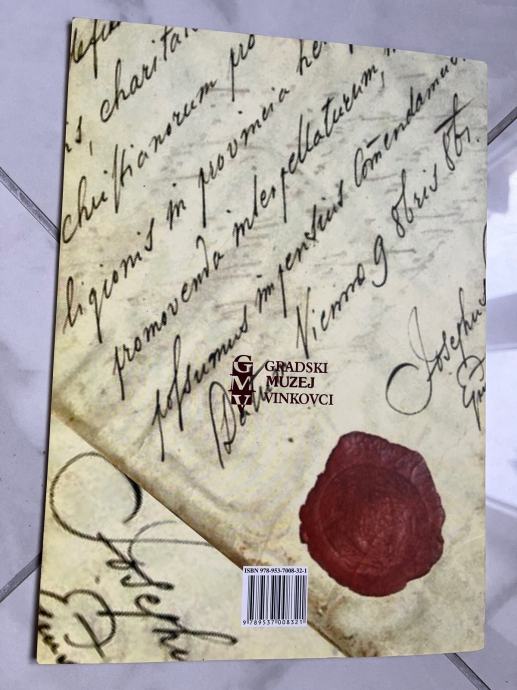 is, charitat
christianorum pro
ligionis in provincia he
promovenda interpellaturum,
possumus impensius Comendamus
Datae Vienna 9 8bris
Josephus
GMV
GRADSKI
MUZEJ
VINKOVCI
ISBN 978-953-7008-32-1
9 789537 008321
Josephu